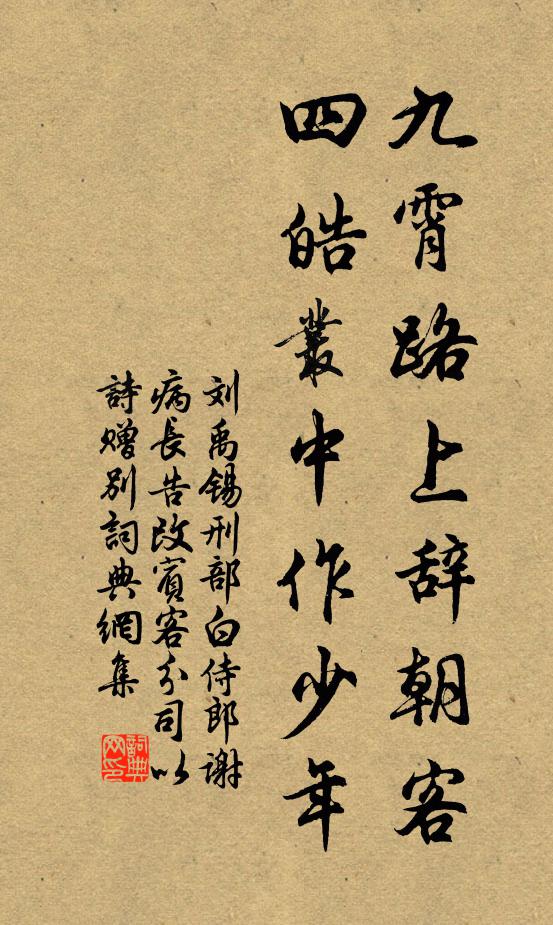 九霄路上辞朝客
四皓叢中作少年
刘禹锡刑部白侍郎谢
病長告改賓客分司以
詩赠别詞典網集
詞典
网印